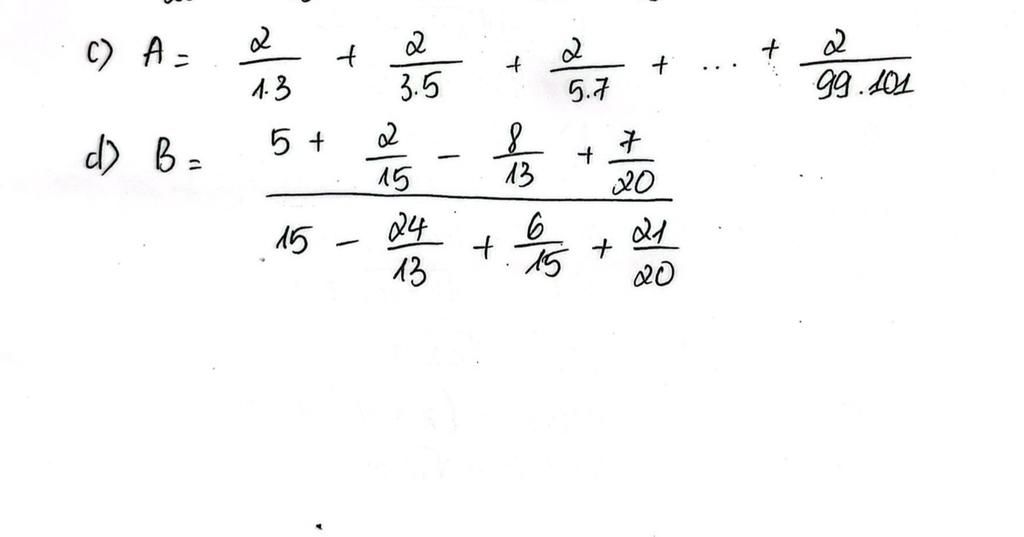 c) A = 2/1.3 + 2/3.5 + 2/5.7 + ... + 2/99.101
d) B = (5 + 2/15 - 8/13 + 7/20) / (15 - 24/13 + 6/15 + 21/20)